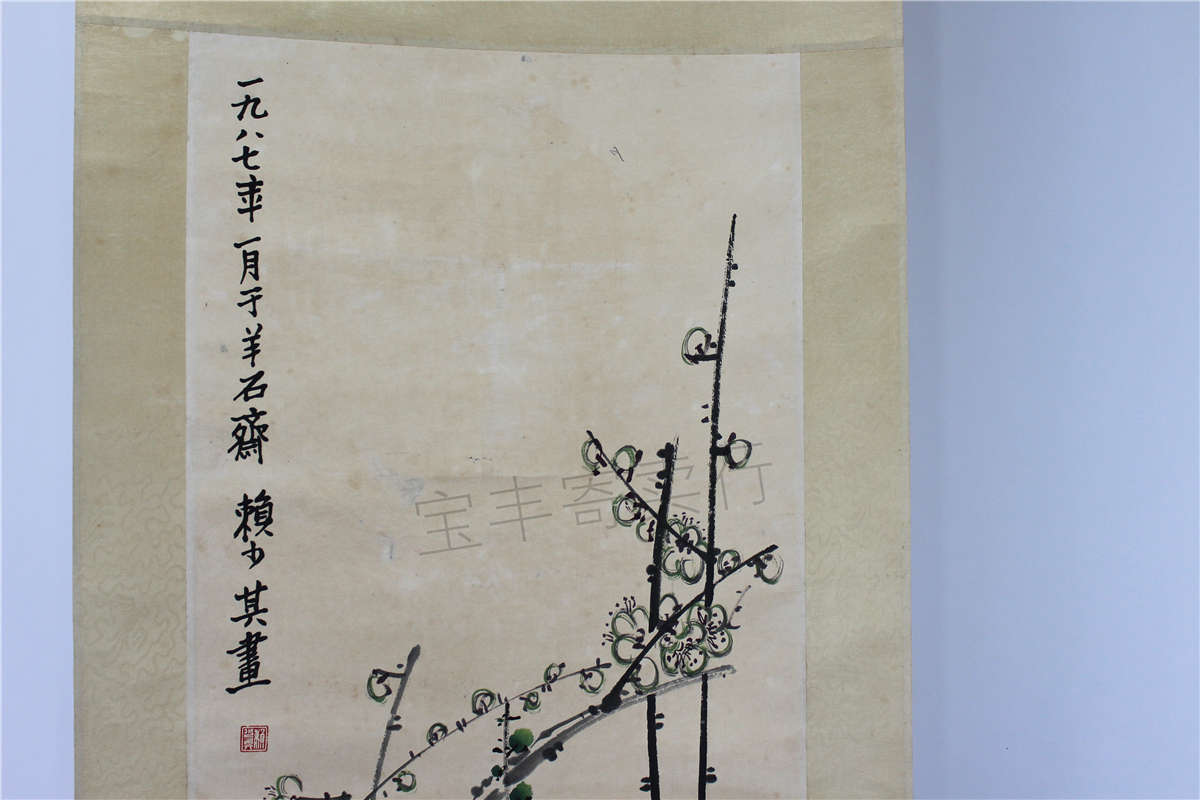 一九八七年一月于羊石齋 賴少其畫
宝丰寄卖行